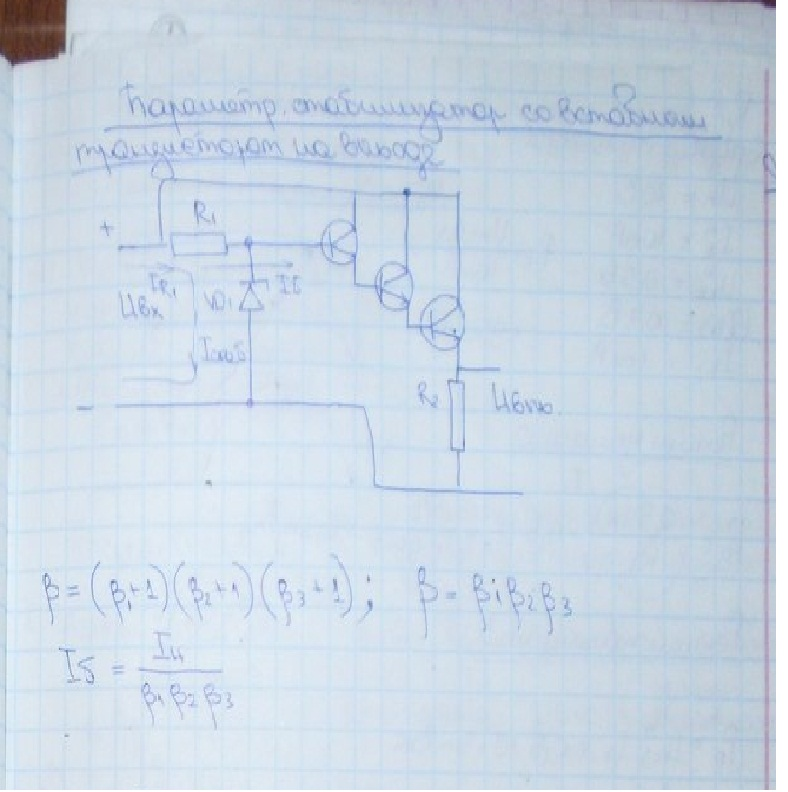 Параметр. стабилизатор со вставным
транзистором на выводе
+
R₁
IR₁
Uвх
VD₁
Iб
Iстаб
−
R₂
Uвых
β = (β₁+1)(β₂+1)(β₃+1); β = β₁β₂β₃
Iб = Iн / β₁β₂β₃